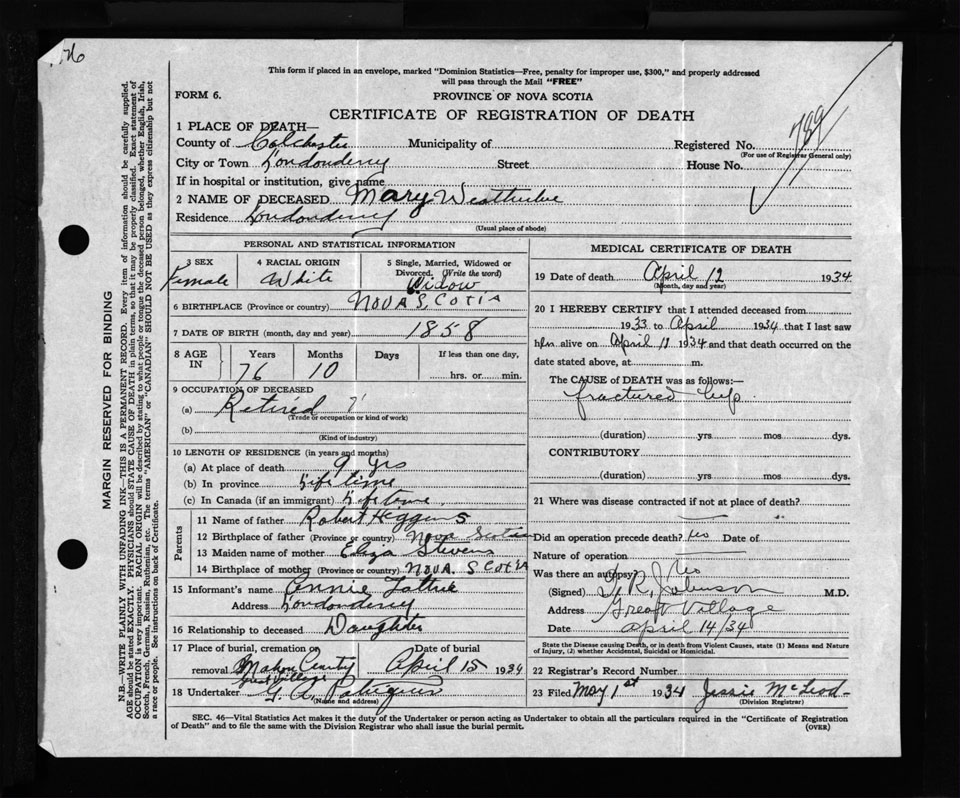 76
This form if placed in an envelope, marked "Dominion Statistics—Free, penalty for improper use, $300," and properly addressed
will pass through the Mail "FREE"
FORM 6.
PROVINCE OF NOVA SCOTIA
CERTIFICATE OF REGISTRATION OF DEATH
789
1 PLACE OF DEATH—
County of Colchester Municipality of Registered No.
(For use of Registrar General only)
City or Town Londonderry Street House No.
If in hospital or institution, give name
2 NAME OF DECEASED Mary Weatherbe
Residence Londonderry
(Usual place of abode)
PERSONAL AND STATISTICAL INFORMATION
3 SEX 4 RACIAL ORIGIN 5 Single, Married, Widowed or
Divorced. (Write the word)
Female White Widow
6 BIRTHPLACE (Province or country) NOVA SCOTIA
7 DATE OF BIRTH (month, day and year) 1858
8 AGE IN Years Months Days If less than one day,
76 10 hrs. or min.
9 OCCUPATION OF DECEASED
(a) Retired
(Trade or occupation or kind of work)
(b)
(Kind of industry)
10 LENGTH OF RESIDENCE (in years and months)
(a) At place of death 9 yrs
(b) In province Life time
(c) In Canada (if an immigrant) Life time
Parents
11 Name of father Robert Heggens
12 Birthplace of father (Province or country) Nova Scotian
13 Maiden name of mother Eliza Stevens
14 Birthplace of mother (Province or country) NOVA SCOTIA
15 Informant's name Annie
Address Londonderry
16 Relationship to deceased Daughter
17 Place of burial, cremation or Date of burial
removal Mahon Cemty April 15 1934
Great Village
18 Undertaker G. A.
(Name and address)
MEDICAL CERTIFICATE OF DEATH
19 Date of death April 12 1934
(Month, day and year)
20 I HEREBY CERTIFY that I attended deceased from
1933 to April 1934 that I last saw
her alive on April 11 1934 and that death occurred on the
date stated above, at m.
The CAUSE of DEATH was as follows:—
fractured hip
(duration) yrs mos dys.
CONTRIBUTORY
(duration) yrs mos dys.
21 Where was disease contracted if not at place of death?
Did an operation precede death? no Date of
Nature of operation
Was there an autopsy? No
(Signed) T. R. Johnson M.D.
Address Great Village
Date April 14/34
State the Disease causing Death, or in death from Violent Causes, state (1) Means and Nature
of Injury, (2) whether Accidental, Suicidal or Homicidal.
22 Registrar's Record Number
23 Filed May 1st 1934 Jessie McLeod
(Division Registrar)
SEC. 46—Vital Statistics Act makes it the duty of the Undertaker or person acting as Undertaker to obtain all the particulars required in the "Certificate of Registration
of Death" and to file the same with the Division Registrar who shall issue the burial permit.
(OVER)
MARGIN RESERVED FOR BINDING
N.B.—WRITE PLAINLY WITH UNFADING INK—THIS IS A PERMANENT RECORD. Every item of information should be carefully supplied.
AGE should be stated EXACTLY. PHYSICIANS should STATE CAUSE OF DEATH in plain terms, so that it may be properly classified. Exact statement of
OCCUPATION is very important. RACIAL ORIGIN will be described by stating to what people or tongue the deceased person belonged, whether English, Irish,
Scotch, French, German, Russian, Ruthenian, etc. The terms "AMERICAN" or "CANADIAN" SHOULD NOT BE USED as they express citizenship but not
a race or people. See instructions on back of Certificate.